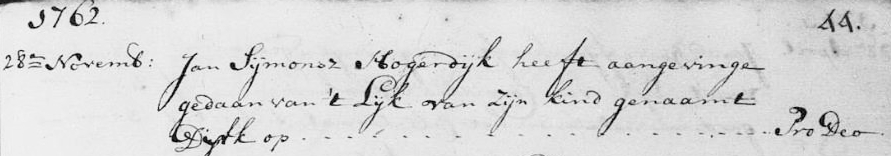 1762. 44.
28en Novemb: Jan Sijmonsz Hogerdijk heeft aangevinge
gedaan van't Lijk van zijn kind genaamt
op . . . . . . . . . . . . . . . . . . . . Pro Deo